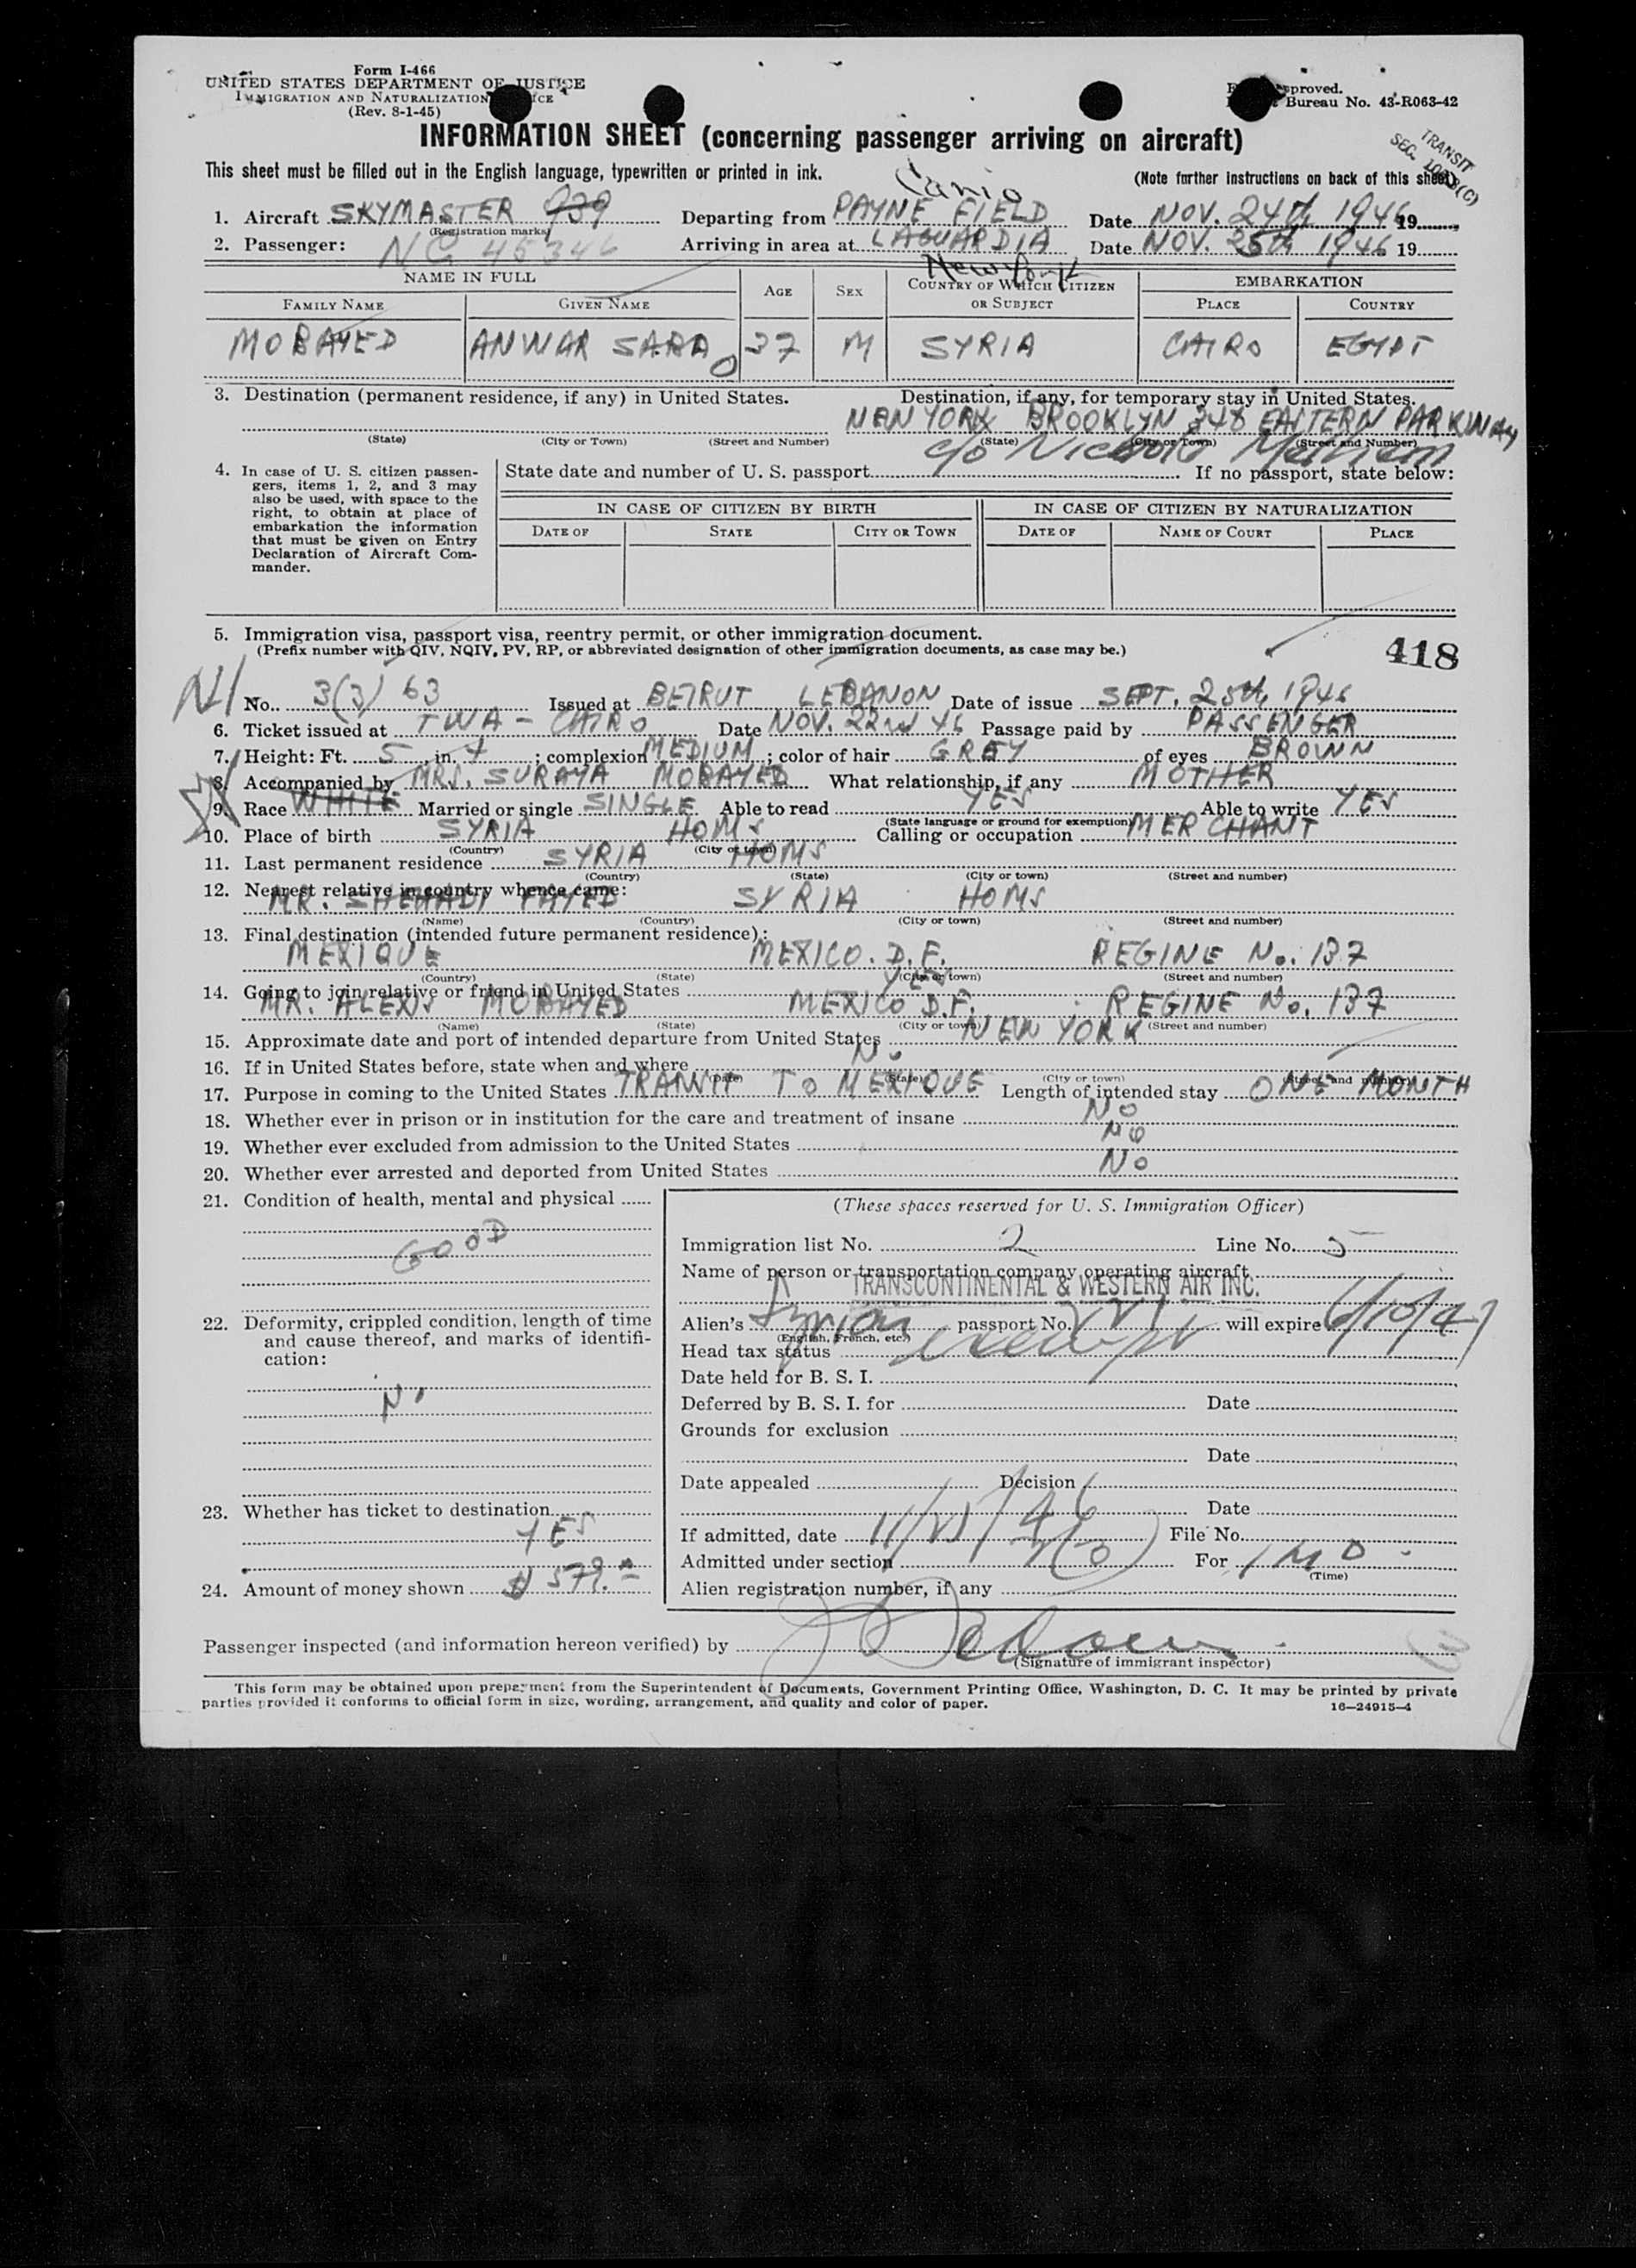 Form I-466
UNITED STATES DEPARTMENT OF JUSTICE
IMMIGRATION AND NATURALIZATION
(Rev. 8-1-45)
Bureau No. 43-R063-42
INFORMATION SHEET (concerning passenger arriving on aircraft)
TRANSIT
This sheet must be filled out in the English language, typewritten or printed in ink.
(Note further instructions on back of this sheet)
Cario
1. Aircraft SKYMASTER 939 Departing from PAYNE FIELD Date NOV. 24th 1946 19
(Registration marks)
2. Passenger: NC 45346 Arriving in area at LAGUARDIA Date NOV. 25th 1946 19
New York
NAME IN FULL AGE SEX COUNTRY OF WHICH CITIZEN OR SUBJECT EMBARKATION
FAMILY NAME GIVEN NAME PLACE COUNTRY
MOBAYED ANWAR SARA 37 M SYRIA CAIRO EGYPT
3. Destination (permanent residence, if any) in United States. Destination, if any, for temporary stay in United States.
NEW YORK BROOKLYN 348 EASTERN PARKWAY
(State) (City or Town) (Street and Number) (State) (City or Town) (Street and Number)
c/o
4. In case of U. S. citizen passengers, items 1, 2, and 3 may also be used, with space to the right, to obtain at place of embarkation the information that must be given on Entry Declaration of Aircraft Commander.
State date and number of U. S. passport If no passport, state below:
IN CASE OF CITIZEN BY BIRTH IN CASE OF CITIZEN BY NATURALIZATION
DATE OF STATE CITY OR TOWN DATE OF NAME OF COURT PLACE
5. Immigration visa, passport visa, reentry permit, or other immigration document.
(Prefix number with QIV, NQIV, PV, RP, or abbreviated designation of other immigration documents, as case may be.)
418
No. 3(3) 63 Issued at BEIRUT LEBANON Date of issue SEPT. 25th, 1946
6. Ticket issued at TWA - CAIRO Date NOV. 22nd 46 Passage paid by PASSENGER
7. Height: Ft. 5, in. 4; complexion MEDIUM; color of hair GREY of eyes BROWN
8. Accompanied by MRS. SURAYA MOBAYED What relationship, if any MOTHER
9. Race WHITE Married or single SINGLE Able to read YES Able to write YES
(State language or ground for exemption)
10. Place of birth SYRIA HOMS Calling or occupation MERCHANT
(Country) (City or town)
11. Last permanent residence SYRIA HOMS
(Country) (State) (City or town) (Street and number)
12. Nearest relative in country whence came:
MR. SHEHADI FAYED SYRIA HOMS
(Name) (Country) (City or town) (Street and number)
13. Final destination (intended future permanent residence):
MEXIQUE MEXICO. D.F. REGINE No. 137
(Country) (State) (City or town) (Street and number)
14. Going to join relative or friend in United States YES
MR. ALEXIS MOBAYED MEXICO D.F. REGINE No. 137
(Name) (State) (City or town) (Street and number)
15. Approximate date and port of intended departure from United States NEW YORK
16. If in United States before, state when and where No
(Date) (State) (City or town) (Street and number)
17. Purpose in coming to the United States TRANSIT TO MEXIQUE Length of intended stay ONE MONTH
18. Whether ever in prison or in institution for the care and treatment of insane No
19. Whether ever excluded from admission to the United States No
20. Whether ever arrested and deported from United States No
21. Condition of health, mental and physical
GOOD
22. Deformity, crippled condition, length of time and cause thereof, and marks of identification:
No
23. Whether has ticket to destination
YES
24. Amount of money shown $ 579.
(These spaces reserved for U. S. Immigration Officer)
Immigration list No. 2 Line No. 5
Name of person or transportation company operating aircraft
TRANSCONTINENTAL & WESTERN AIR INC.
Alien's Syrian passport No. will expire 6/10/47
(English, French, etc.)
Head tax status exempt
Date held for B. S. I.
Deferred by B. S. I. for Date
Grounds for exclusion
Date
Date appealed Decision
Date
If admitted, date File No.
Admitted under section For 1 MO.
(Time)
Alien registration number, if any
Passenger inspected (and information hereon verified) by
(Signature of immigrant inspector)
This form may be obtained upon prepayment from the Superintendent of Documents, Government Printing Office, Washington, D. C. It may be printed by private
parties provided it conforms to official form in size, wording, arrangement, and quality and color of paper.
16—24915-4